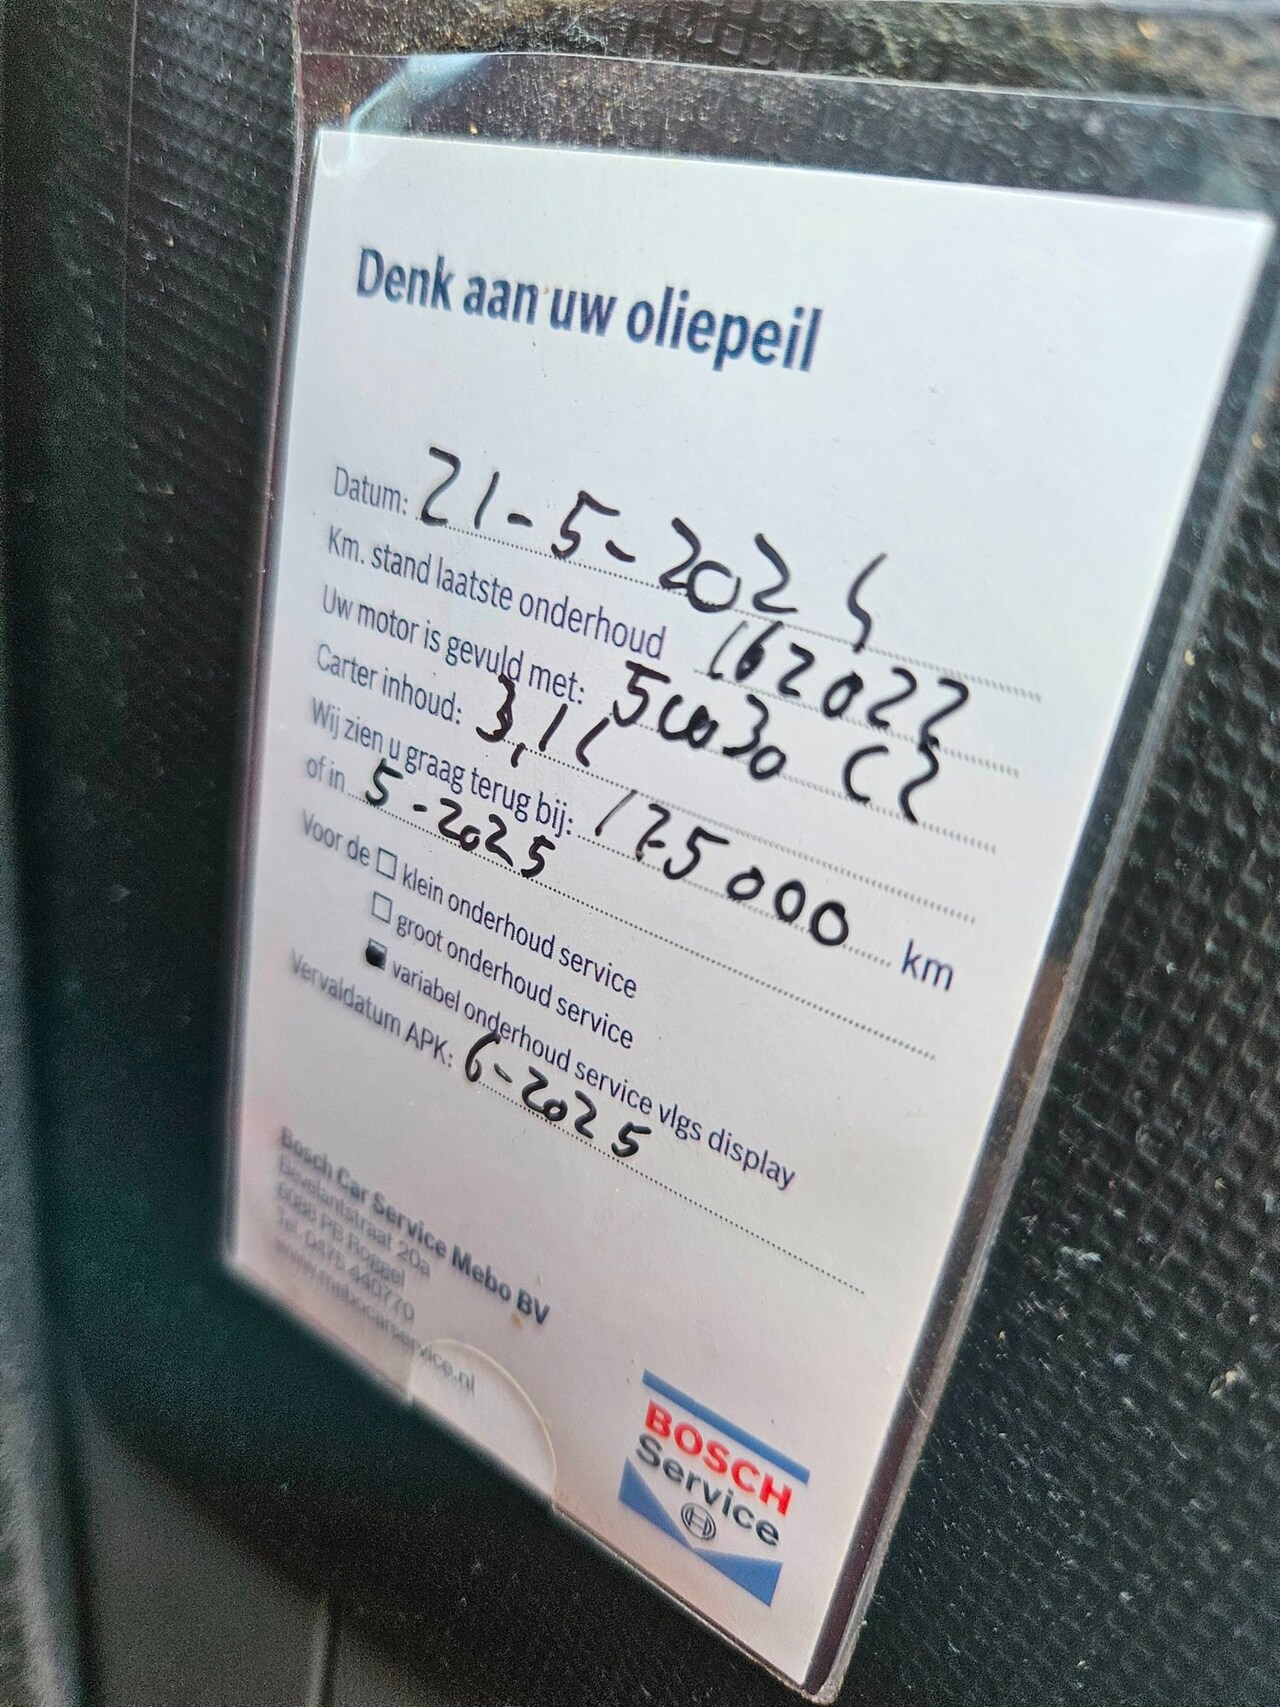 Denk aan uw oliepeil
Datum: 21-5-2024
Km. stand laatste onderhoud 162022
Uw motor is gevuld met: 5w030 C2
Carter inhoud: 3,1 L
Wij zien u graag terug bij: 175000 km
of in 5-2025
Voor de □ klein onderhoud service
□ groot onderhoud service
■ variabel onderhoud service vlgs display
Vervaldatum APK: 6-2025
Bosch Car Service Mebo BV
Bevelantstraat 20a
6088 PB Roggel
Tel. 0475-440770
www.mebocarservice.nl
BOSCH
Service